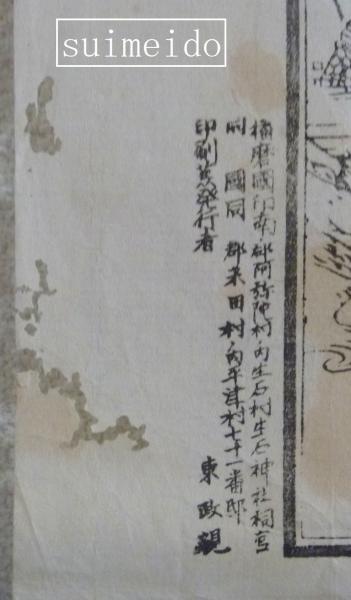 suimeido
播磨國印南郡阿弥陀村ノ内生石村生石神社祠官
同國同郡米田村ノ内平津村七十一番邸
印刷兼発行者
東政親